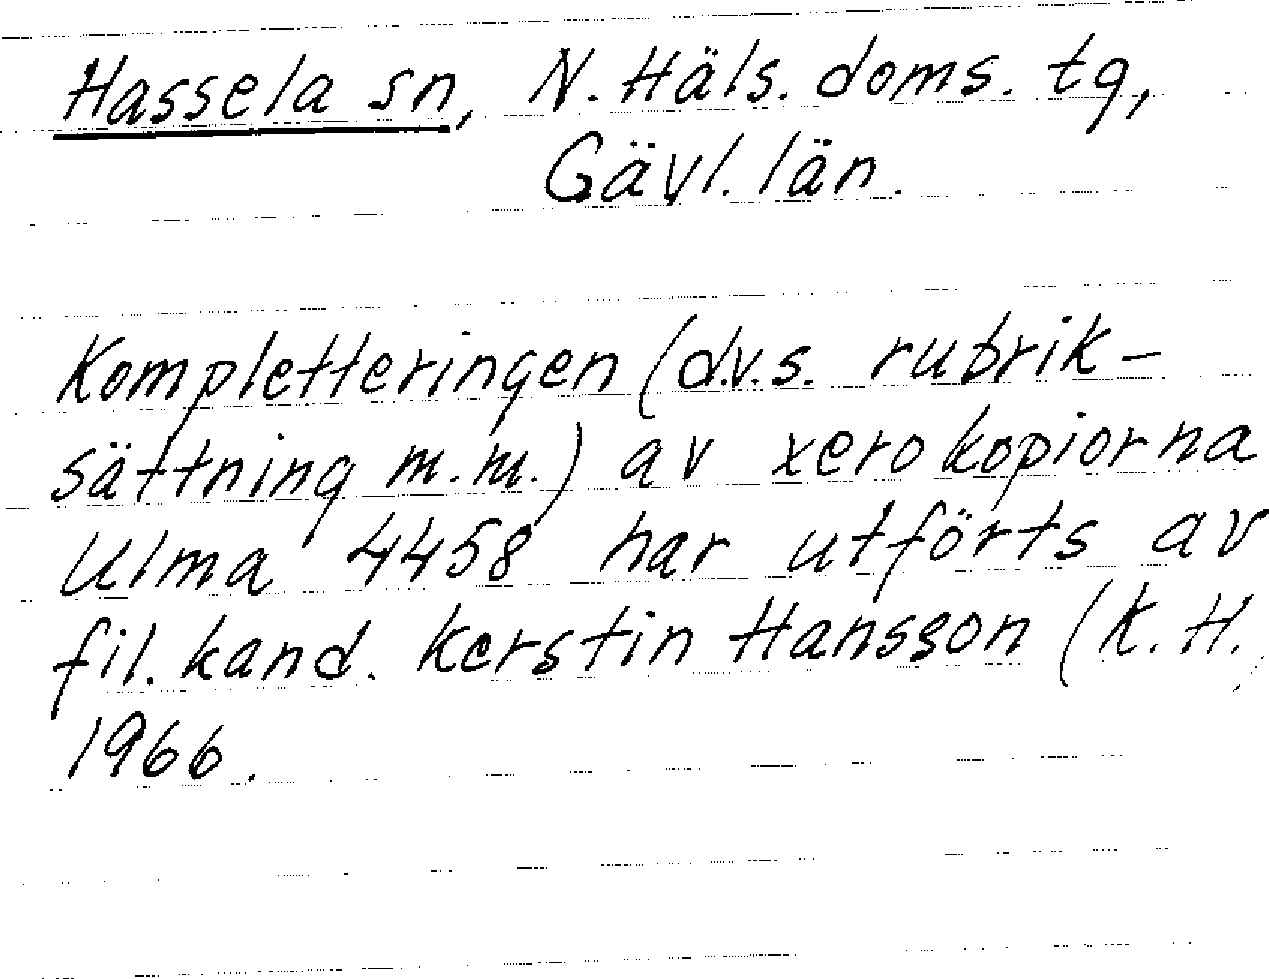 Hassela sn, N. Häls. doms. tg,
Gävl. län.
Kompletteringen (d.v.s. rubrik-
sättning m.m.) av xerokopiorna
Ulma 4458 har utförts av
fil. kand. Kerstin Hansson (K. H.
1966.